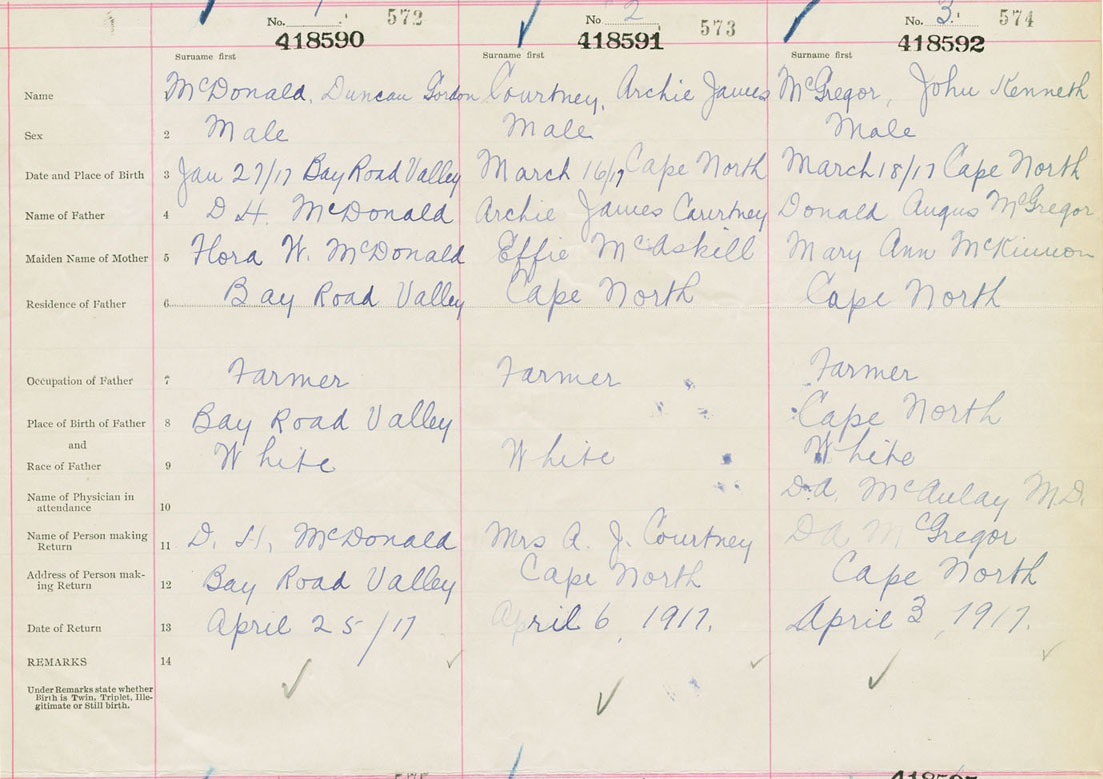 No. 1 572
No 2 573
No. 3 574
418590 418591 418592
Surname first Surname first Surname first
Name McDonald, Duncan Gordon Courtney, Archie James McGregor, John Kenneth
Sex 2 Male Male Male
Date and Place of Birth 3 Jan 27/17 Bay Road Valley March 16/17 Cape North March 18/17 Cape North
Name of Father 4 D H. McDonald Archie James Courtney Donald Angus McGregor
Maiden Name of Mother 5 Flora W. McDonald Effie McAskill Mary Ann McKinnon
Residence of Father 6 Bay Road Valley Cape North Cape North
Occupation of Father 7 Farmer Farmer Farmer
Place of Birth of Father 8 Bay Road Valley Cape North
and
Race of Father 9 White White White
Name of Physician in
attendance 10 D.A. McAulay M.D.
Name of Person making
Return 11 D. H. McDonald Mrs A. J. Courtney D A McGregor
Address of Person mak-
ing Return 12 Bay Road Valley Cape North Cape North
Date of Return 13 April 25/17 April 6, 1917. April 3, 1917.
REMARKS 14
Under Remarks state whether
Birth is Twin, Triplet, Ille-
gitimate or Still birth.